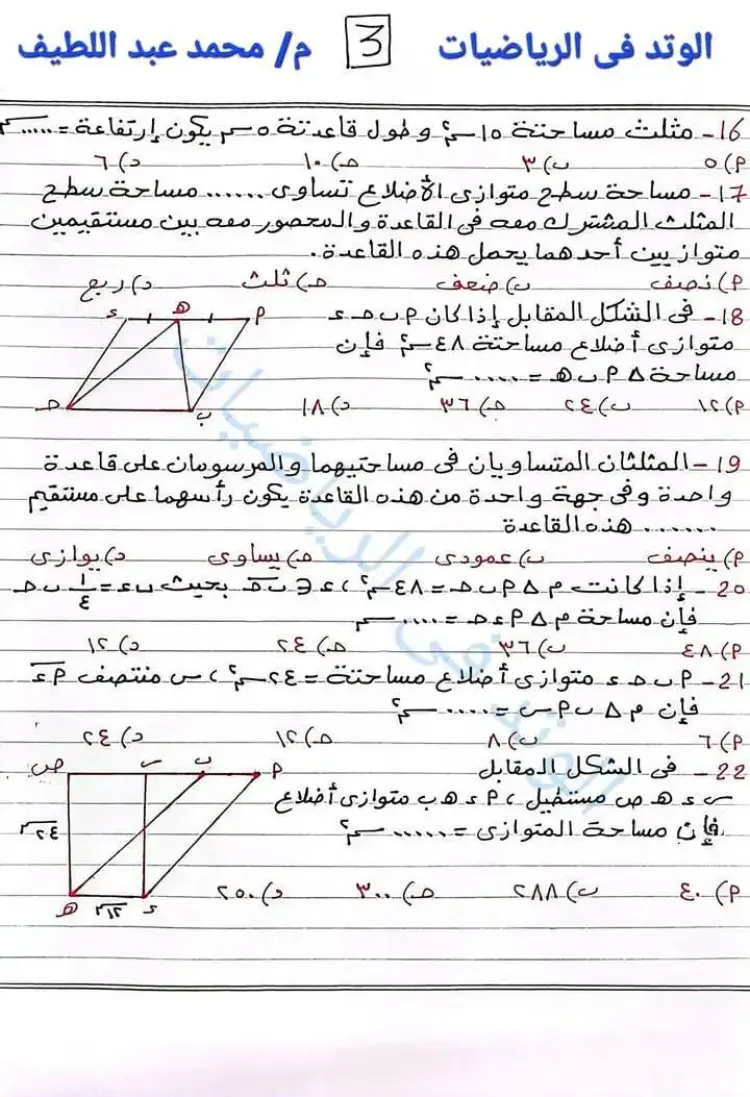 الوتد فى الرياضيات 3 م/ محمد عبد اللطيف
16- مثلث مساحتة ١٥ سم٢ وطول قاعدتة ٥ سم يكون إرتفاعة = ..... سم
٥ (P ب) ٣ حـ) ١٠ د) ٦
17- مساحة سطح متوازى الأضلاع تساوى ...... مساحة سطح
المثلث المشترك معه فى القاعدة والمحصور معه بين مستقيمين
متوازيين أحدهما يحمل هذه القاعدة.
P) نصف ب) ضعف حـ) ثلث د) ربع
18- فى الشكل المقابل إذا كان P ب حـ ء
متوازى أضلاع مساحتة ٤٨ سم٢ فإن
مساحة △ P ب هـ = ..... سم٢
P) ١٢ ب) ٢٤ حـ) ٣٦ د) ١٨
P هـ ء
حـ ب
19- المثلثان المتساويان فى مساحتيهما والمرسومان على قاعدة
واحدة وفى جهة واحدة من هذه القاعدة يكون رأسهما على مستقيم
...... هذه القاعدة
P) ينصف ب) عمودى حـ) يساوى د) يوازى
20- إذا كانت م △ P ب حـ = ٤٨ سم٢ ، ء ∈ ب حـ بحيث ب ء = ١/٤ ب حـ
فإن مساحة م △ P ء حـ = ..... سم
P) ٤٨ ب) ٣٦ حـ) ٢٤ د) ١٢
21- P ب حـ ء متوازى أضلاع مساحتة = ٢٤ سم٢ ، س منتصف P ء
فإن م △ ب P س = ..... سم٢
P) ٦ ب) ٨ حـ) ١٢ د) ٢٤
22- فى الشكل المقابل
س ء هـ ص مستطيل ، P ء هـ ب متوازى أضلاع
فإن مساحة المتوازى = ...... سم٢
P) ٤٠ ب) ٢٨٨ حـ) ٣٠٠ د) ٢٥٠
P ب س ص
٢٤ سم
هـ ١٢ سم ء
الوتد فى الرياضيات